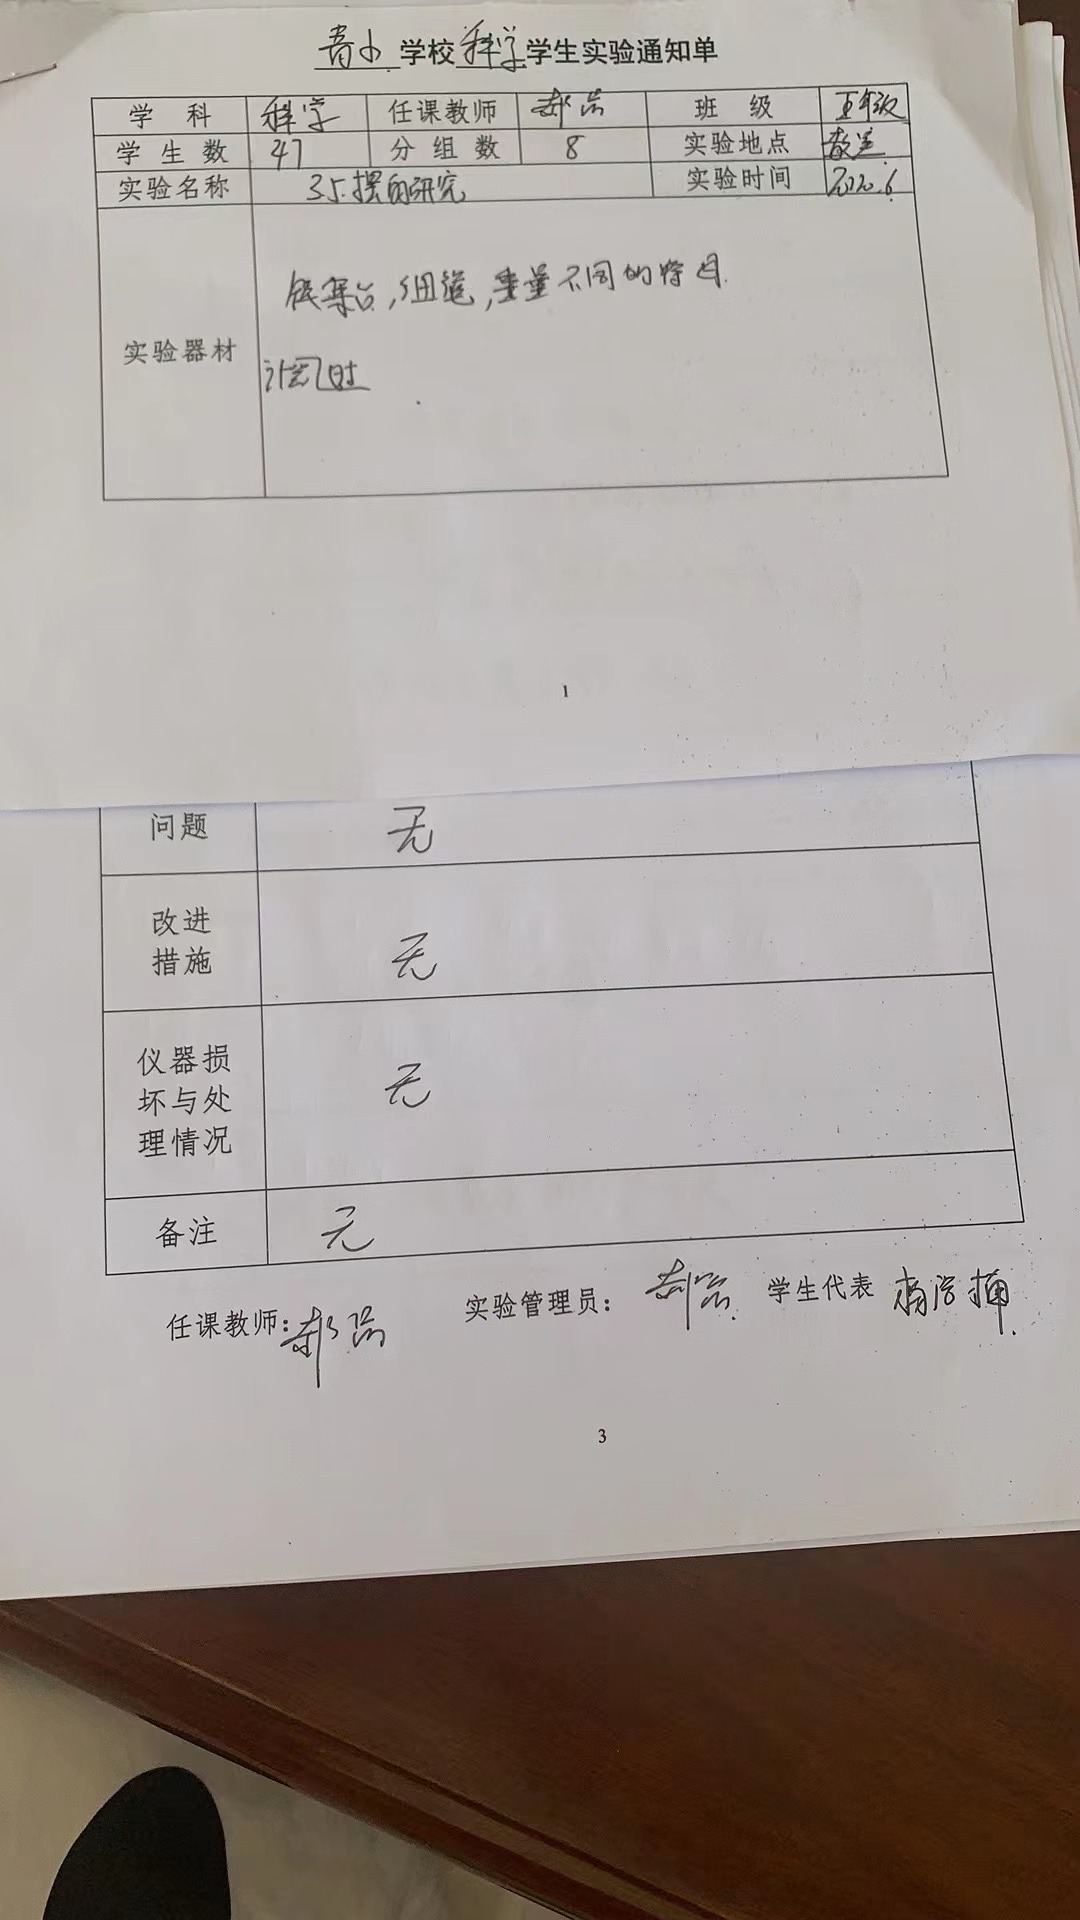 青小学校科学学生实验通知单
学 科 科学 任课教师 郝 班 级 五年级
学生数 47 分组数 8 实验地点 教室
实验名称 35.摆的研究 实验时间 2020.6
铁架台,细绳,重量不同的
实验器材
1
问题 无
改进
措施 无
仪器损
坏与处 无
理情况
备注 无
任课教师:郝 实验管理员: 学生代表 杨
3